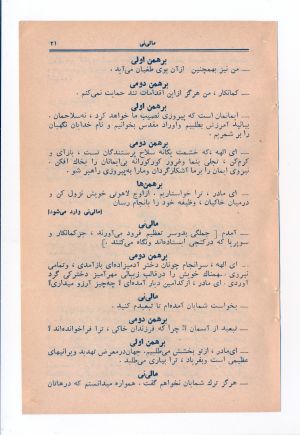 مالی‌نی
۳۱
برهمن اولی
— من نیز بهمچنین ازآن بوی طغیان می‌آید.
برهمن دومی
— کمانکار ، من هرگز ازاین اقدامات تند حمایت نمی‌کنم .
برهمن اولی
— ایمانمان است که پیروزی نصیب ما خواهد کرد ، نه‌سلاحمان .
بیائید آمرزش بطلبیم واوراد مقدس بخوانیم و نام خدایان نگهبان
را بر شمریم .
برهمن دومی
— ای الهه ،که خشمت یگانه سلاح پرستندگان تست ، بارای و
کرم‌کن ، تجلی بنما وغرور کورکورانه بی‌ایمانان را بخاک افکن .
نیروی ایمان را برما آشکارگردان ومارا به‌پیروزی راهبر شو .
برهمن‌ها
— ای مادر ، ترا خواستاریم . ازاوج لاهوتی خویش نزول کن و
درمیان خاکیان ، وظیفه خود را بانجام رسان
(مالی‌نی وارد می‌شود)
مالی‌نی
— آمدم [ جملگی بدوسر تعظیم فرود می‌آورند ، جزکمانکار و
سوپریا که درکنجی ایستاده‌اند ونگاه می‌کنند .]
برهمن دومی
— ای الهه ، سرانجام چونان دختر آدمیزاده‌ای بازآمدی ، وتمامی
نیروی سهمناک خویش را درقالب زیبائی مهرآمیز دخترکی گرد
آوردی . ای مادر ، ازکدامین دیار آمده‌ای ؟ چه‌چیز آرزو میداری؟
مالی‌نی
— بخواست شمایان آمده‌ام تا تبعیدم کنید .
برهمن دومی
— تبعید از آسمان !! چرا که فرزندان خاکی ، ترا فراخوانده‌اند!
برهمن اولی
— ای‌مادر ، ازتو بخشش می‌طلبیم. جهان‌درمعرض تهدید ویرانیهای
عظیمی است وبفریاد ، ترا بیاری می‌طلبد .
مالی‌نی
— هرگز ترک شمایان نخواهم گفت . همواره میدانستم که درهاتان